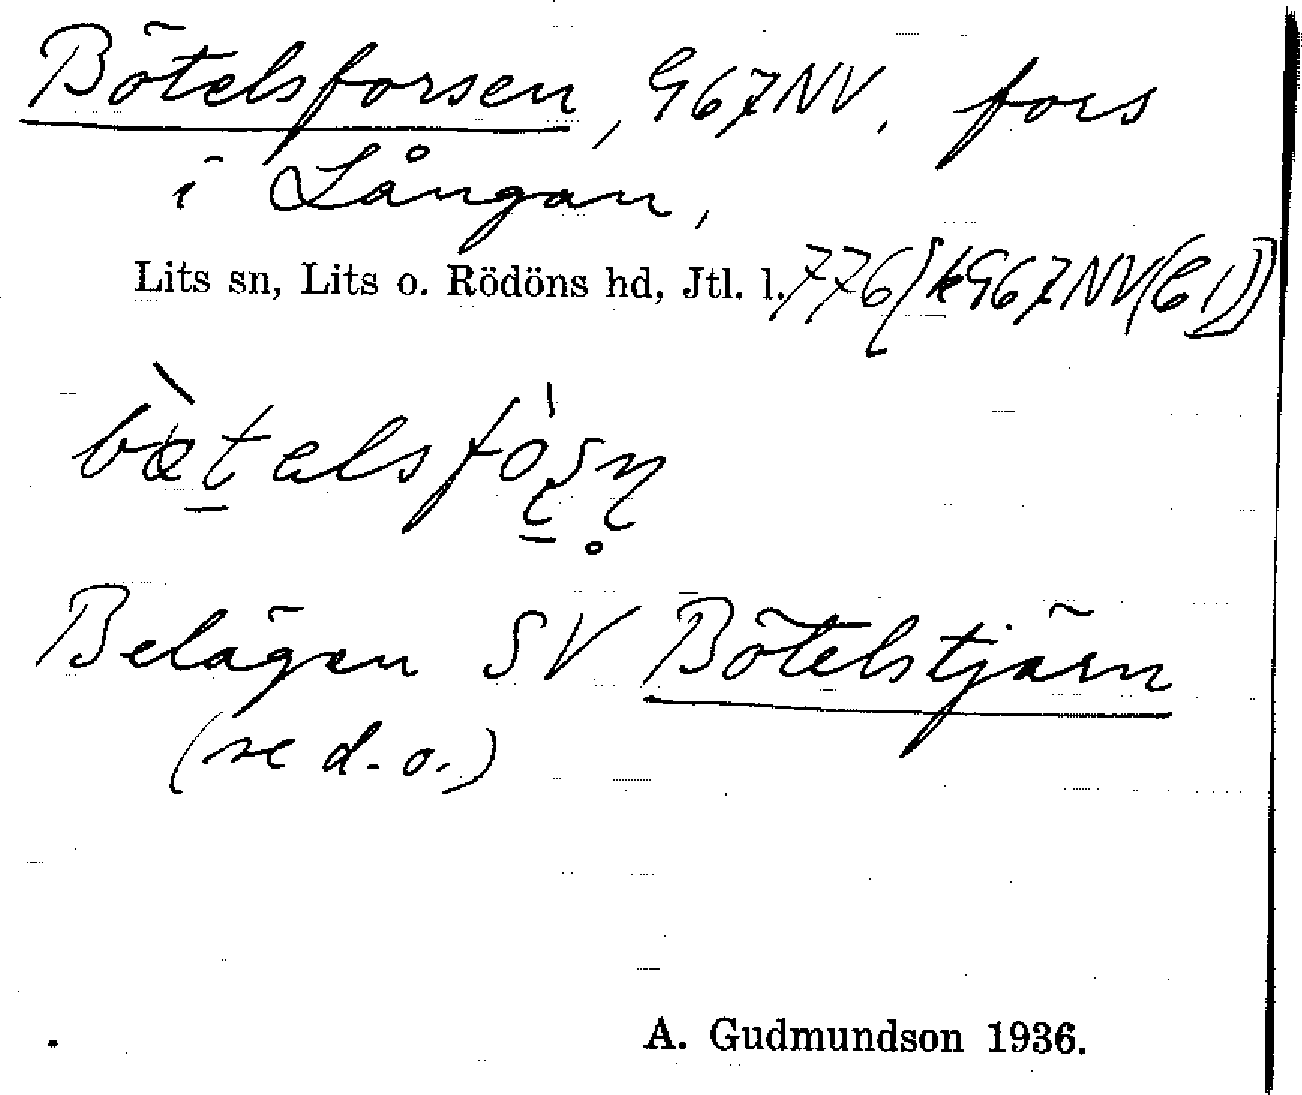 Bötelsforsen, G67NV. fors
i Långan,
Lits sn, Lits o. Rödöns hd, Jtl. l. 776[k G67NV(61)]
bæ̀telsfòʂɳ̥
Belägen SV Bötelstjärn
(se d. o.)
A. Gudmundson 1936.